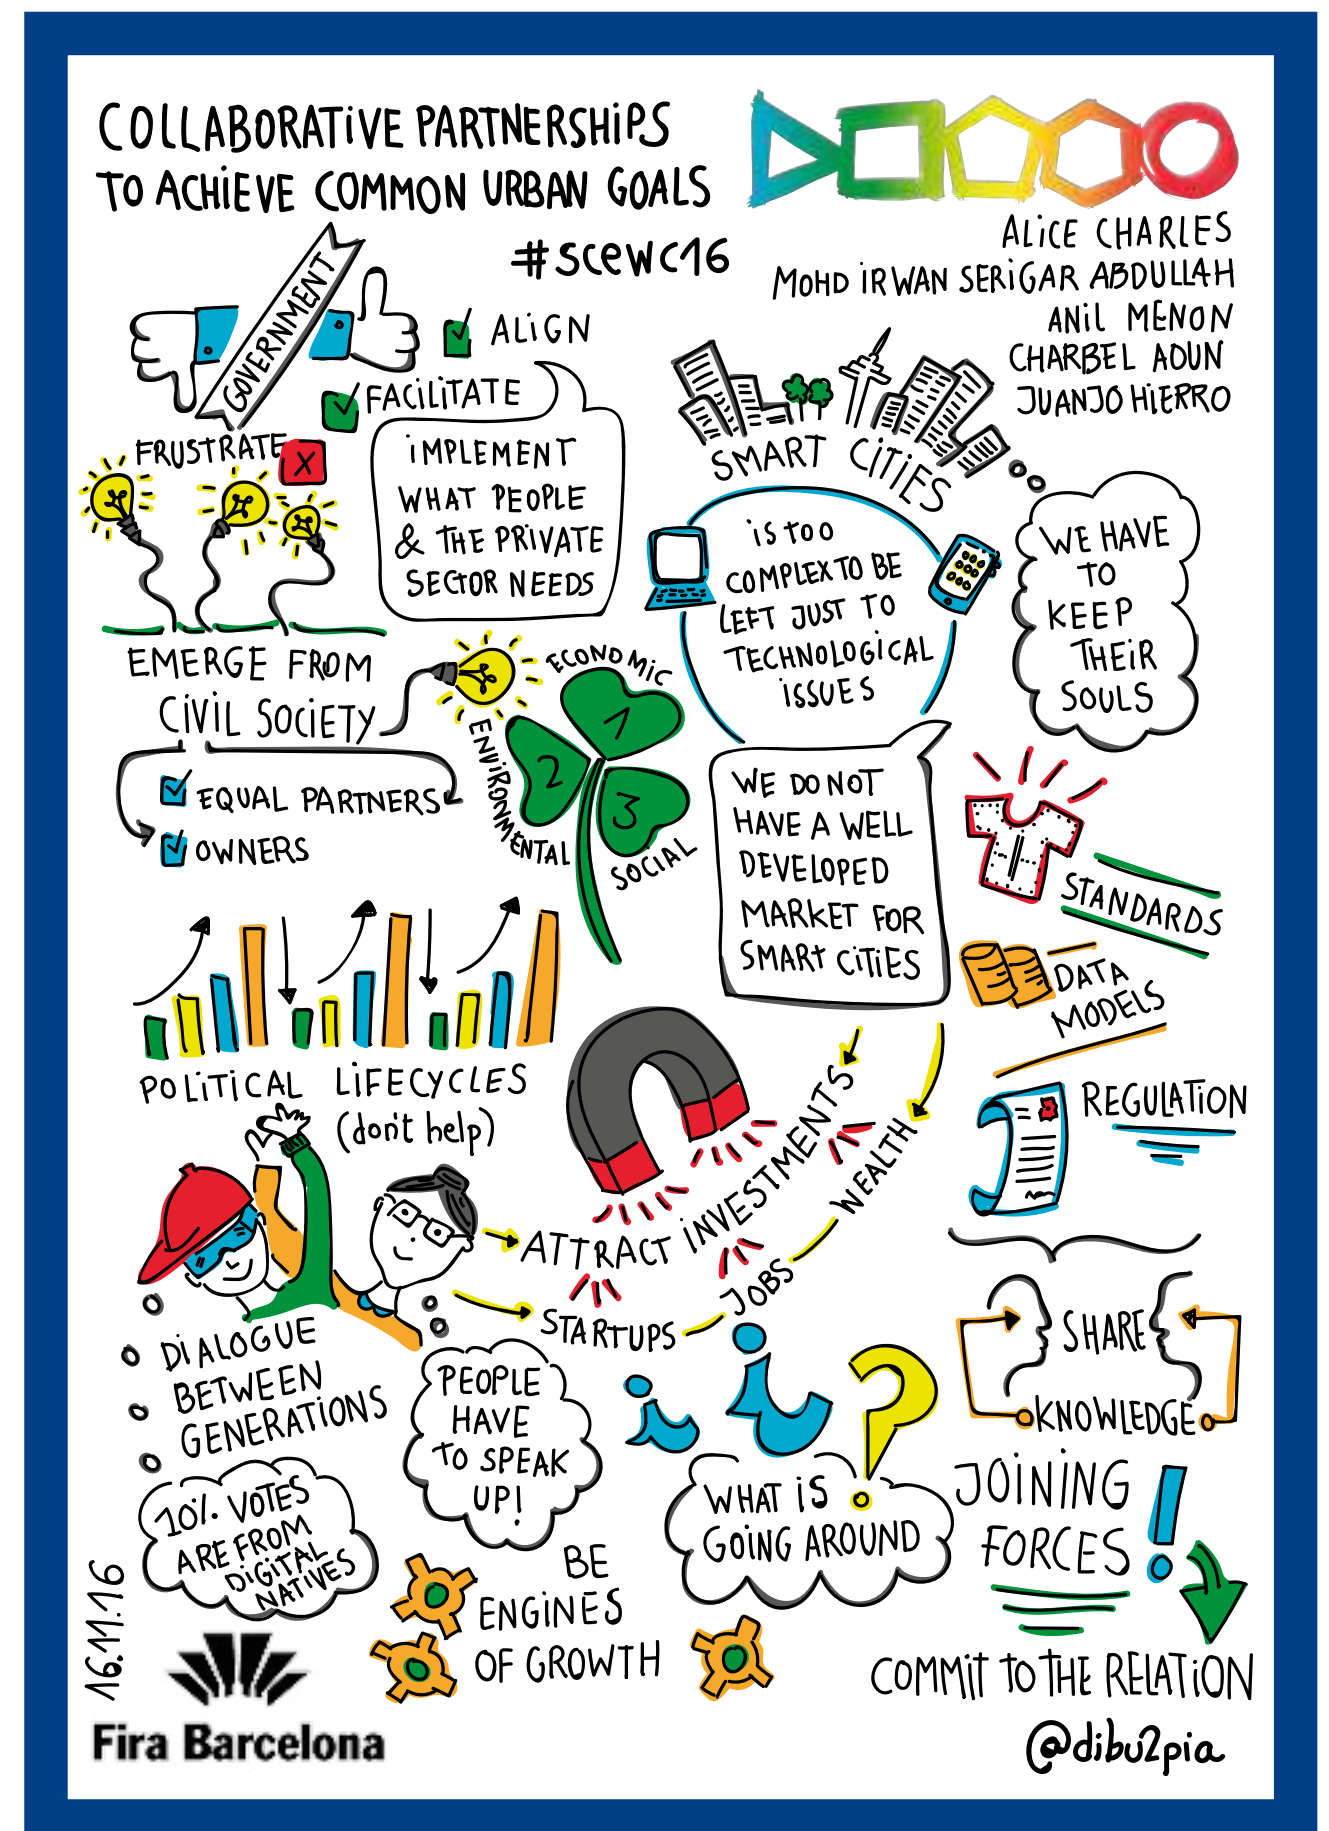 COLLABORATIVE PARTNERSHIPS
TO ACHIEVE COMMON URBAN GOALS
#scewc16
ALICE CHARLES
MOHD IRWAN SERIGAR ABDULLAH
ANIL MENON
CHARBEL AOUN
JUANJO HIERRO
GOVERNMENT
ALIGN
FACILITATE
FRUSTRATE
X
IMPLEMENT
WHAT PEOPLE
& THE PRIVATE
SECTOR NEEDS
EMERGE FROM
CIVIL SOCIETY
EQUAL PARTNERS
OWNERS
ECONOMIC
ENVIRONMENTAL
SOCIAL
1
2
3
SMART CITIES
IS TOO
COMPLEX TO BE
LEFT JUST TO
TECHNOLOGICAL
ISSUES
WE HAVE
TO
KEEP
THEIR
SOULS
WE DO NOT
HAVE A WELL
DEVELOPED
MARKET FOR
SMART CITIES
STANDARDS
DATA
MODELS
REGULATION
POLITICAL LIFECYCLES
(don't help)
ATTRACT INVESTMENTS
STARTUPS
JOBS
WEALTH
SHARE
KNOWLEDGE
DIALOGUE
BETWEEN
GENERATIONS
PEOPLE
HAVE
TO SPEAK
UP!
10% VOTES
ARE FROM
DIGITAL
NATIVES
i i ?
WHAT IS
GOING AROUND
JOINING
FORCES !
BE
ENGINES
OF GROWTH
COMMIT TO THE RELATION
16.11.16
Fira Barcelona
@dibu2pia